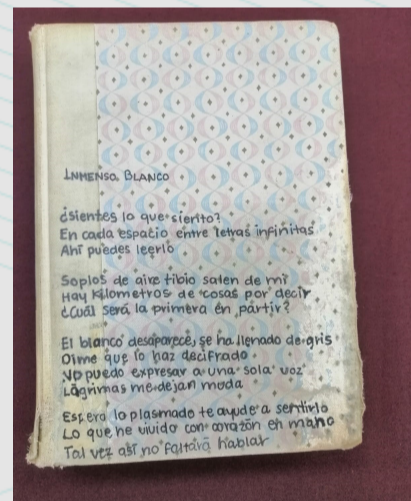 INMENSO BLANCO
¿Sientes lo que siento?
En cada espacio entre letras infinitas
Ahí puedes leerlo
Soplos de aire tibio salen de mi
Hay kilometros de cosas por decir
¿Cuál será la primera en partir?
El blanco desaparece, se ha llenado de gris
Dime que lo haz decifrado
No puedo expresar a una sola voz
Lágrimas me dejan muda
Espero lo plasmado te ayude a sentirlo
Lo que he vivido con corazón en mano
Tal vez así no faltará hablar